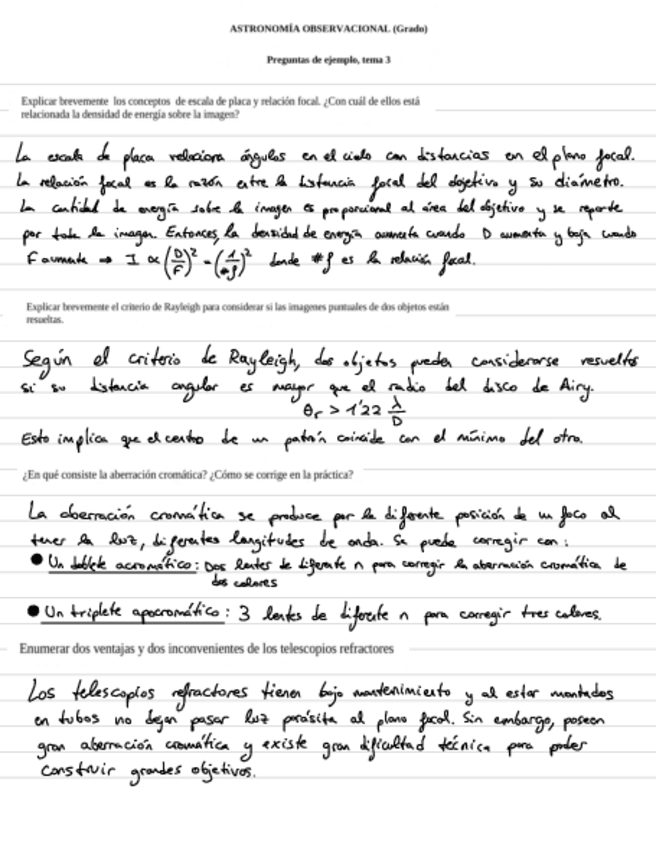 ASTRONOMÍA OBSERVACIONAL (Grado)
Preguntas de ejemplo, tema 3
Explicar brevemente los conceptos de escala de placa y relación focal. ¿Con cuál de ellos está
relacionada la densidad de energía sobre la imagen?
La escala de placa relaciona ángulos en el cielo con distancias en el plano focal.
La relación focal es la razón entre la distancia focal del objetivo y su diámetro.
La cantidad de energía sobre la imagen es proporcional al área del objetivo y se reparte
por toda la imagen. Entonces, la densidad de energía aumenta cuando D aumenta y baja cuando
F aumenta → I ∝ (D/F)² = (1/#f)² donde #f es la relación focal.
Explicar brevemente el criterio de Rayleigh para considerar si las imagenes puntuales de dos objetos están
resueltas.
Según el criterio de Rayleigh, dos objetos pueden considerarse resueltos
si su distancia angular es mayor que el radio del disco de Airy.
θr > 1'22 λ/D
Esto implica que el centro de un patrón coincide con el mínimo del otro.
¿En qué consiste la aberración cromática? ¿Cómo se corrige en la práctica?
La aberración cromática se produce por la diferente posición de un foco al
tener la luz, diferentes longitudes de onda. Se puede corregir con:
● Un doblete acromático: Dos lentes de diferente n para corregir la aberración cromática de
dos colores
● Un triplete apocromático: 3 lentes de diferente n para corregir tres colores.
Enumerar dos ventajas y dos inconvenientes de los telescopios refractores
Los telescopios refractores tienen bajo mantenimiento y al estar montados
en tubos no dejan pasar luz parásita al plano focal. Sin embargo, poseen
gran aberración cromática y existe gran dificultad técnica para poder
construir grandes objetivos.